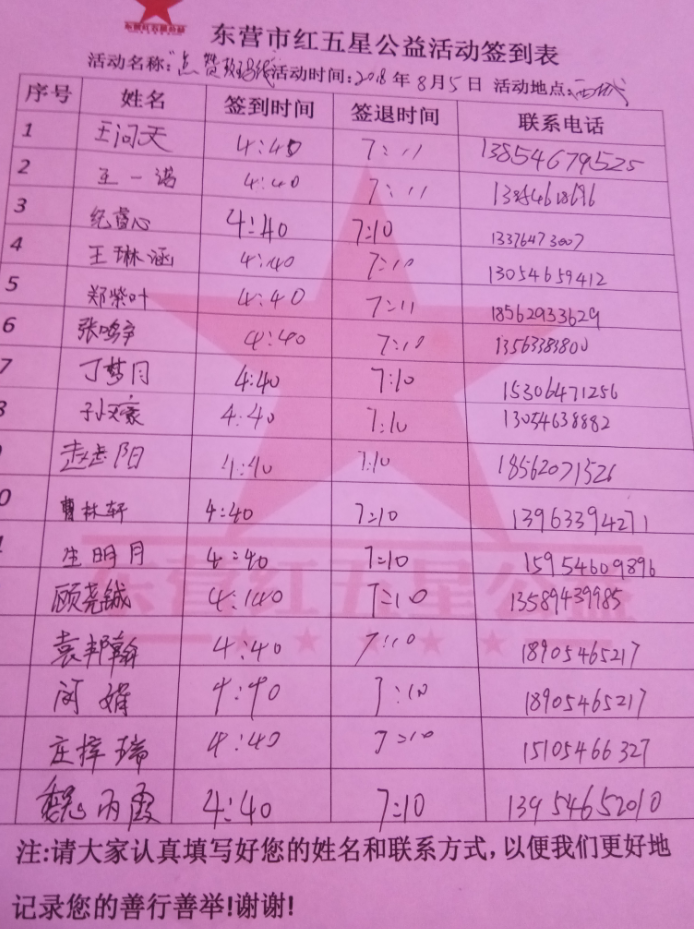 东营市红五星公益活动签到表
活动名称: 活动时间:2018年8月5日 活动地点:西城
序号 姓名 签到时间 签退时间 联系电话
1 王问天 4:40 7:11 13854679525
2 王一涵 4:40 7:11
3 纪睿心 4:40 7:10 13376473007
4 王琳涵 4:40 7:10 13054659412
5 郑紫叶 4:40 7:11 18562933629
6 张鸣争 4:40 7:10 13563381800
7 丁梦月 4:40 7:10 15306471256
孙文豪 4:40 7:10 13054638882
赵赵阳 4:40 7:10 18562071526
0 曹林轩 4:40 7:10 13963394271
生明月 4:40 7:10 15954609896
顾尧铖 4:40 7:10 13589439985
袁邦翰 4:40 7:10 18905465217
闵娟 4:40 7:10 18905465217
庄梓瑞 4:40 7:10 15105466327
魏丙霞 4:40 7:10 13954652010
东营红五星公益
注:请大家认真填写好您的姓名和联系方式,以便我们更好地
记录您的善行善举!谢谢!